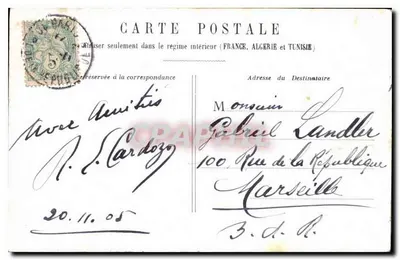 CARTE POSTALE
seulement dans le régime intérieur (FRANCE, ALGÉRIE et TUNISIE)
réservée à la correspondance
Adresse du Destinataire
Avec Amitiés
R. E. Cardozo
20.11.05
Monsieur
Gabriel Landler
100 Rue de la République
Marseille
B. d. R.